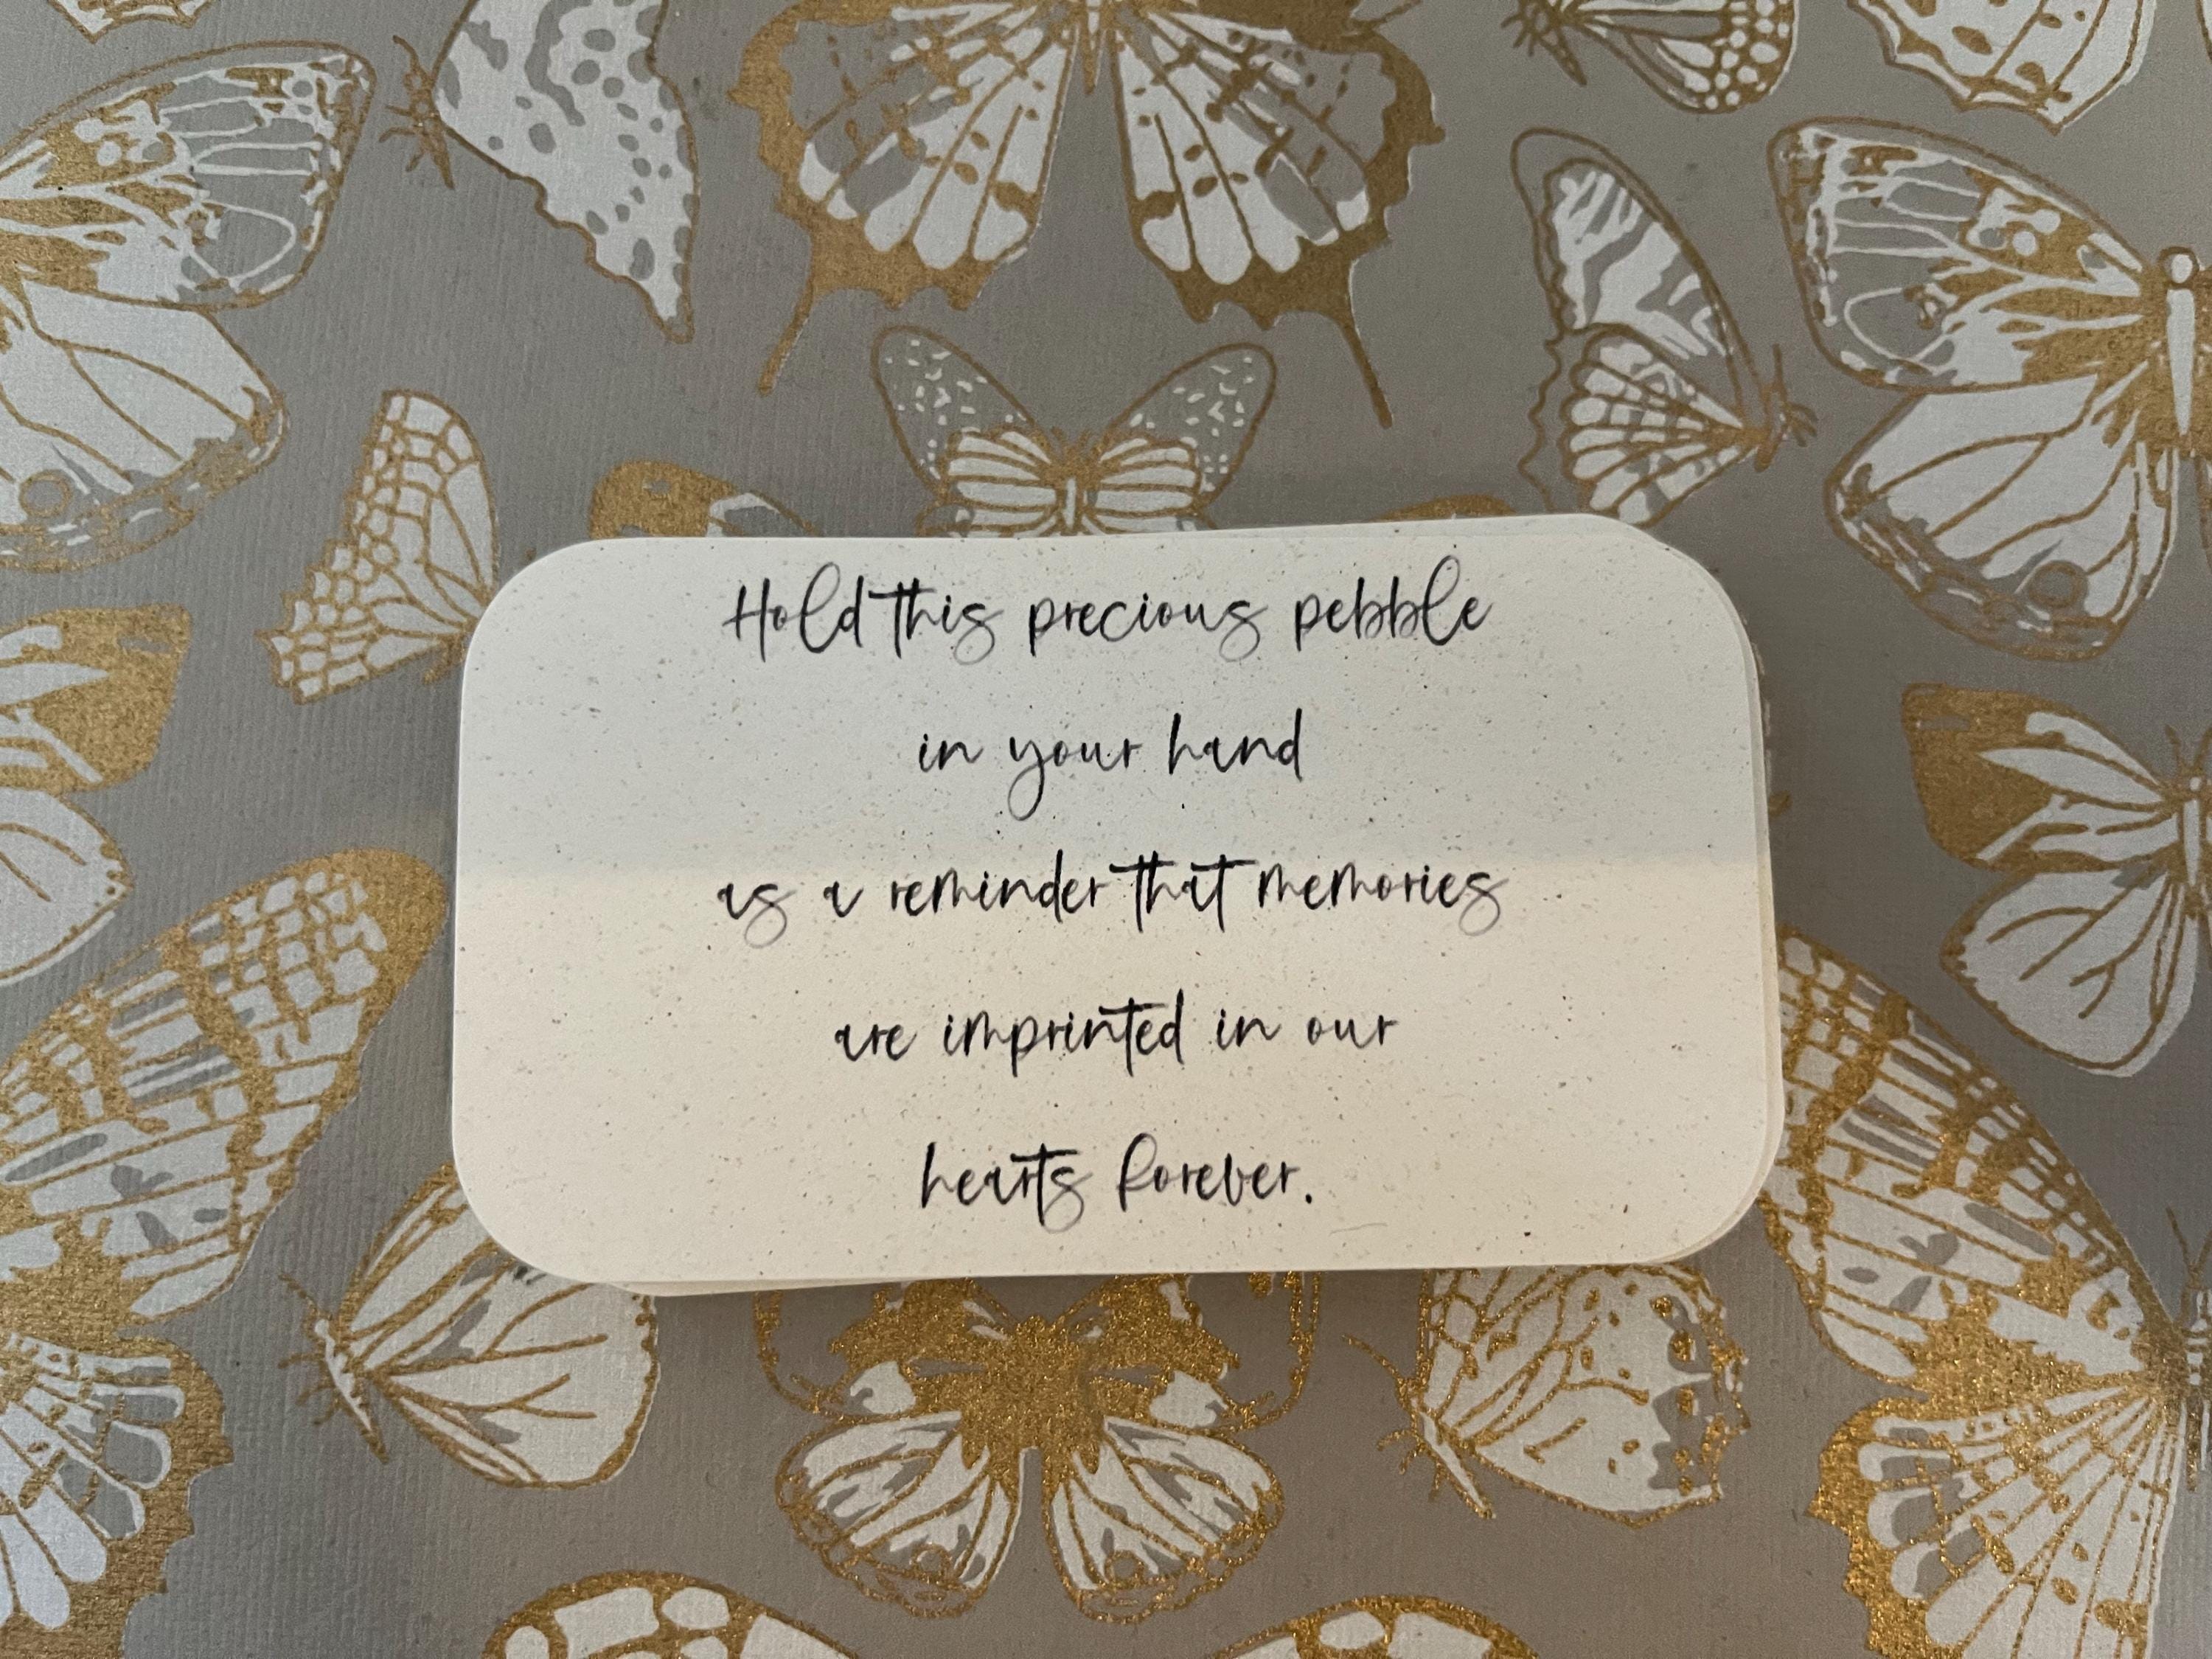 Hold this precious pebble
in your hand
as a reminder that memories
are imprinted in our
hearts forever.